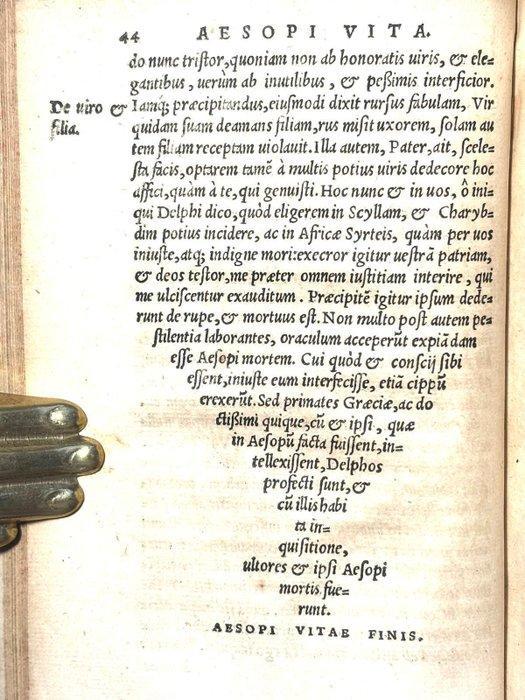 44 AESOPI VITA.
do nunc tristor, quoniam non ab honoratis uiris, & ele=
gantibus, uerùm ab inutilibus, & peßimis interficior.
De uiro &
filia.
Iamq; præcipitandus, eiusmodi dixit rursus fabulam, Vir
quidam suam deamans filiam, rus misit uxorem, solam au
tem filiam receptam uiolauit. Illa autem, Pater, ait, scele=
sta facis, optarem tamẽ à multis potius uiris dedecore hoc
affici, quàm à te, qui genuisti. Hoc nunc & in uos, ô ini=
qui Delphi dico, quòd eligerem in Scyllam, & Charyb=
dim potius incidere, ac in Africæ Syrteis, quàm per uos
iniuste, atq; indigne mori: execror igitur uestrã patriam,
& deos testor, me præter omnem iustitiam interire, qui
me ulciscentur exauditum. Præcipitẽ igitur ipsum dede=
runt de rupe, & mortuus est. Non multo post autem pe=
stilentia laborantes, oraculum acceperũt expiãdam
esse Aesopi mortem. Cui quòd & conscij sibi
essent, iniuste eum interfecisse, etiã cippũ
erexerũt. Sed primates Græciæ, ac do
ctißimi quique, cũ & ipsi, quæ
in Aesopũ facta fuissent, in=
tellexissent, Delphos
profecti sunt, &
cũ illis habi
ta in=
quisitione,
ultores & ipsi Aesopi
mortis fue=
runt.
AESOPI VITAE FINIS.